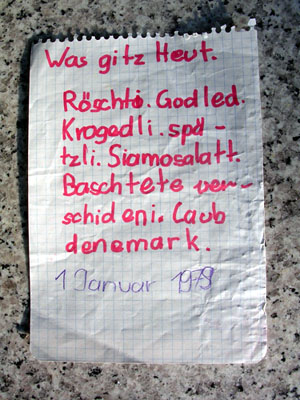 Was gitz Heut.
Röschti. Godled.
Krogedli. spä-
tzli. Siamosalatt.
Baschtete ver-
schideni. Caub
denemark.
1 Januar 1979